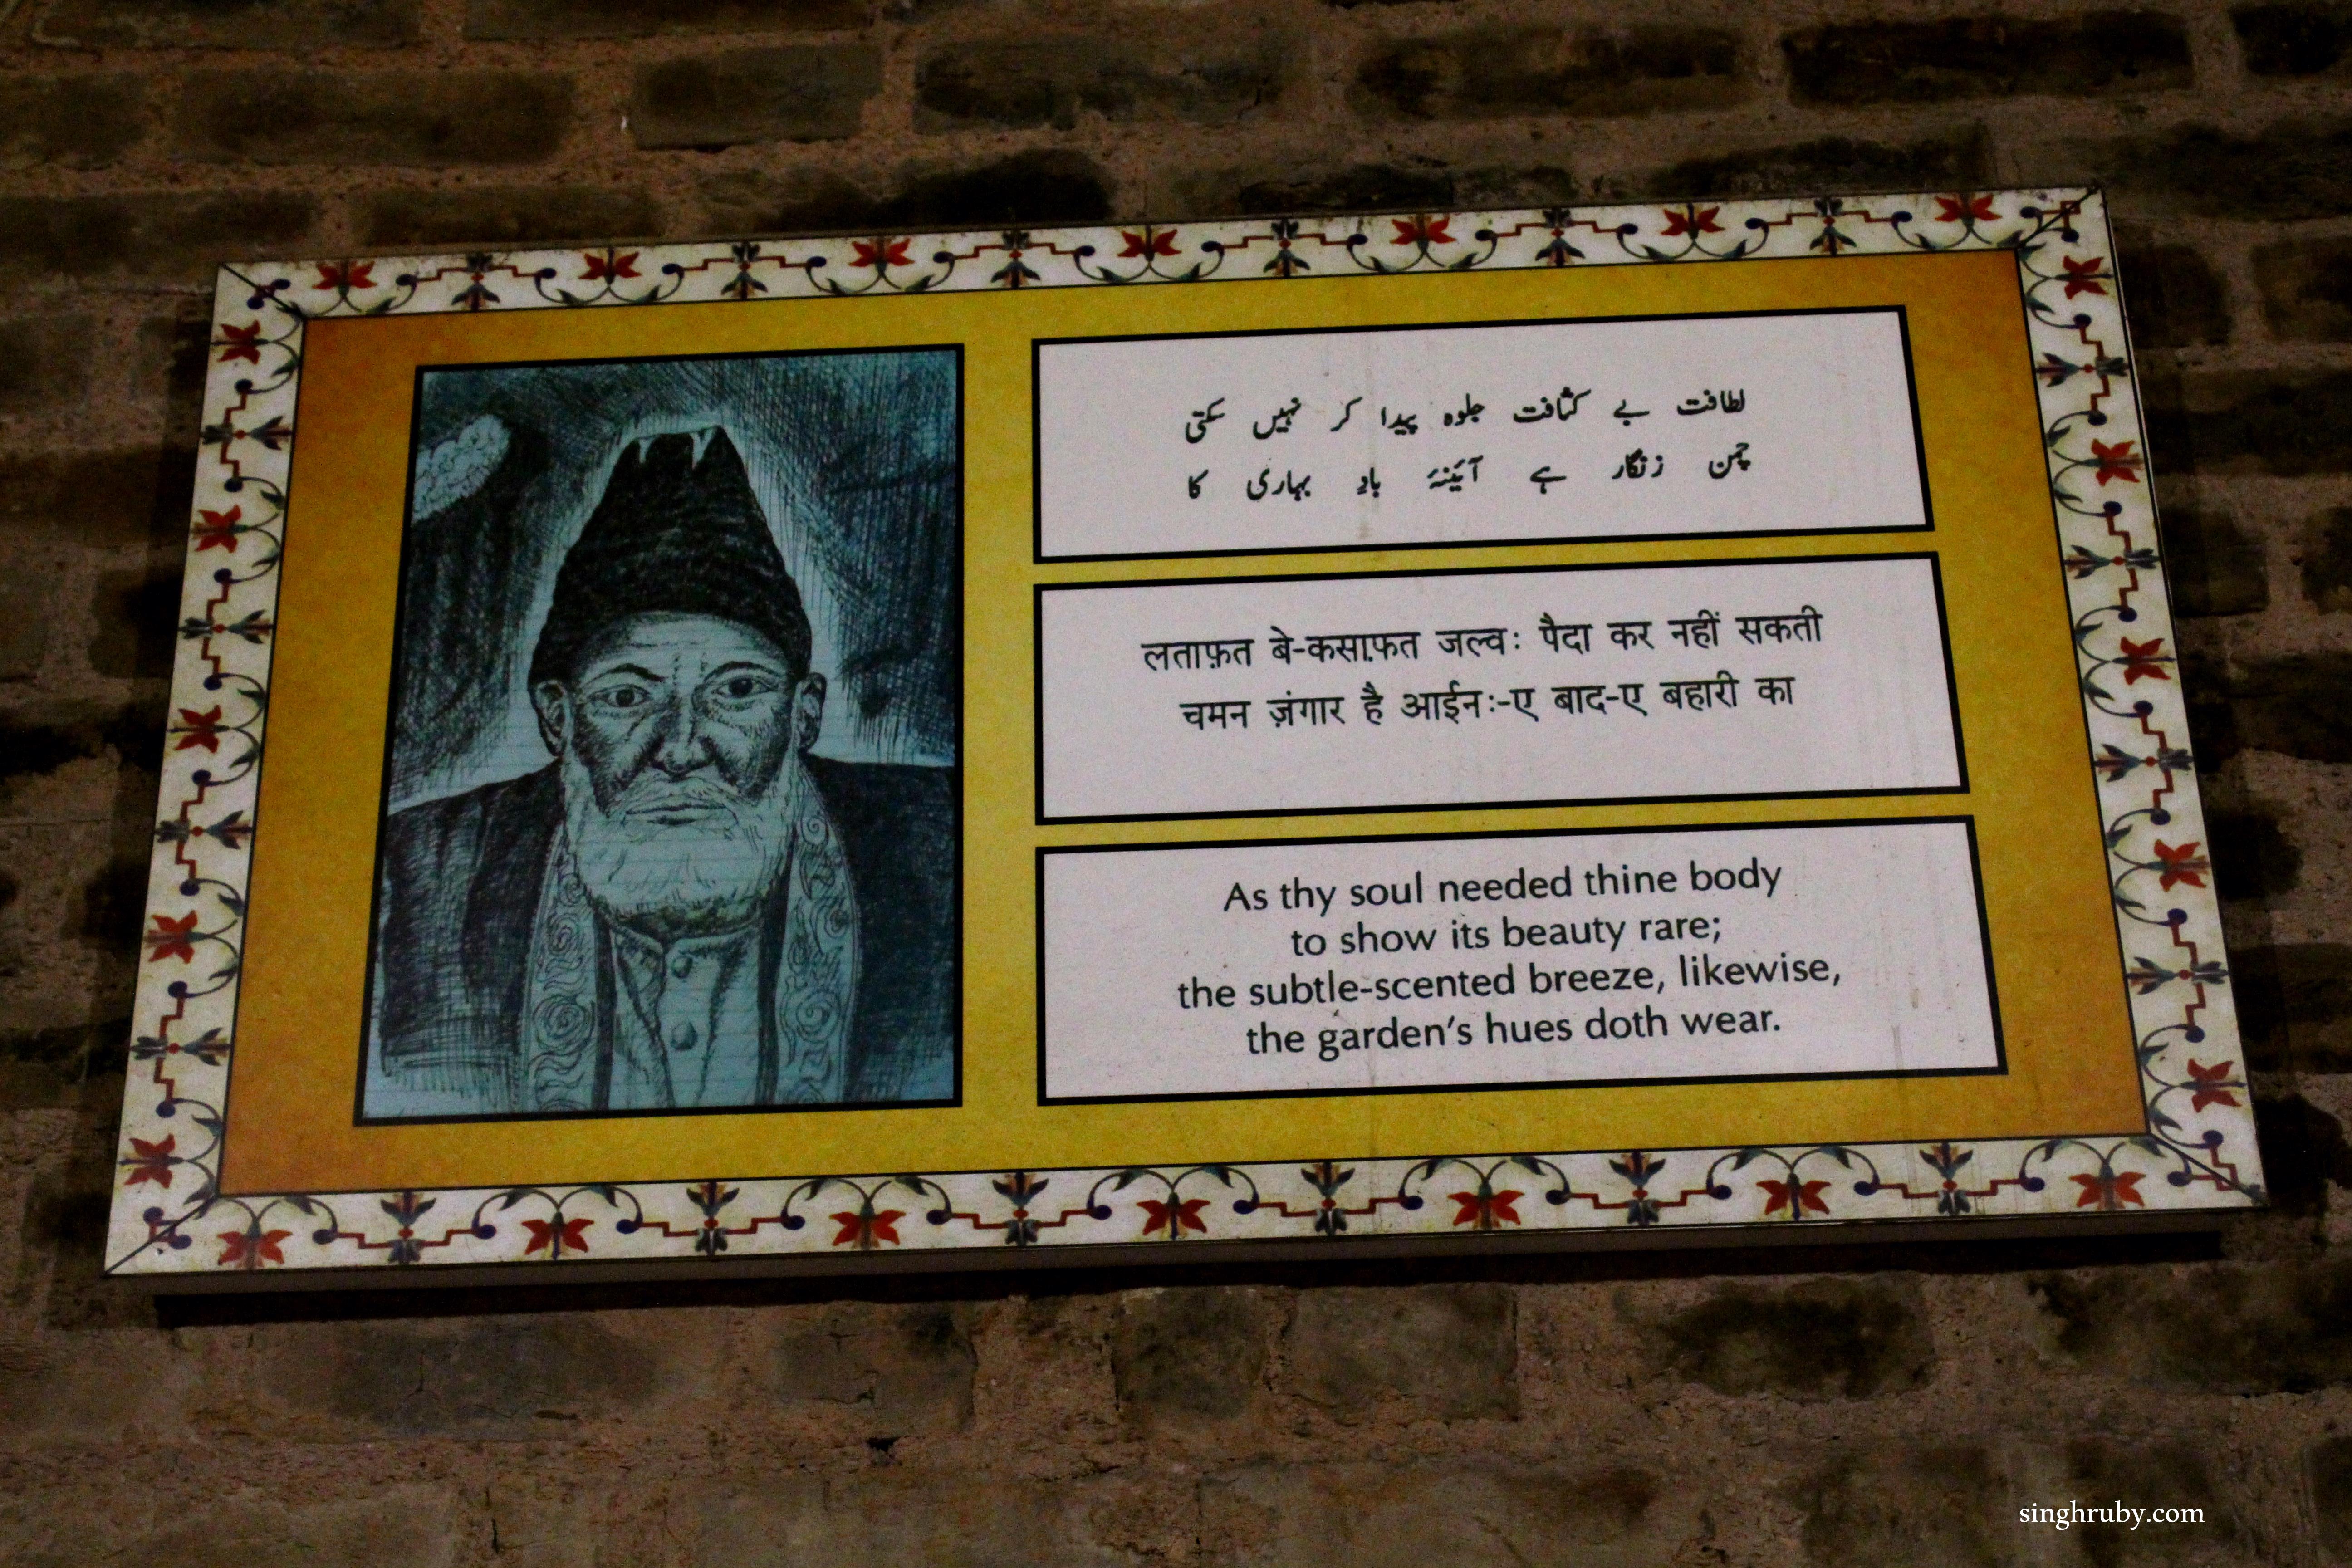 لطافت بے کثافت جلوہ پیدا کر نہیں سکتی
چمن زنگار ہے آئینۂ بادِ بہاری کا
लताफ़त बे-कसाफ़त जल्वः पैदा कर नहीं सकती
चमन ज़ंगार है आईनः-ए बाद-ए बहारी का
As thy soul needed thine body
to show its beauty rare;
the subtle-scented breeze, likewise,
the garden's hues doth wear.
singhruby.com